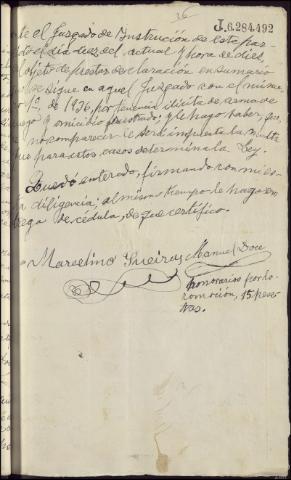 16
J.6.284.492
te el Juzgado de Instrucción de este par-
tido el día diez del actual y hora de diez,
objeto de prestar declaración en sumario
se sigue en aquel Juzgado con el núme-
de 1936, por tenencia ilícita de arma de
fuego y omicidio frustrado; y le hago saber, que
no comparecer le será impuesta la multa
que para estos casos determina la Ley.
Quedó enterado, firmando con mi es-
diligencia; al mismo tiempo le hago en-
trega de cédula, de que certifico.
Marcelino Pueiras Manuel Doce
honorarios por lo
comoción, 15 pese-
tas.